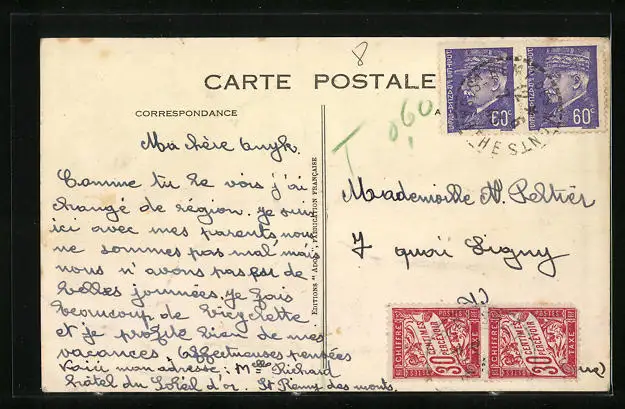 8
CARTE POSTALE
CORRESPONDANCE
A
T 0,60
60c
60c
Ma chère
Comme tu le vois j'ai
changé de région. Je suis
ici avec mes parents, nous
ne sommes pas mal, mais
nous n'avons pas eu de
belles journées. Je fais
beaucoup de bicyclette
et je profite bien de mes
vacances. Affectueuses pensées
Voici mon adresse : Melle Richard
hôtel du Soleil d'or. St Remy des monts.
EDITIONS "ADOS", FABRICATION FRANÇAISE
Mademoiselle N. Peltier
7 quai Ligny
CHIFFRE TAXE
30 CENTIMES A PERCEVOIR
POSTES
CHIFFRE TAXE
30 CENTIMES A PERCEVOIR
POSTES